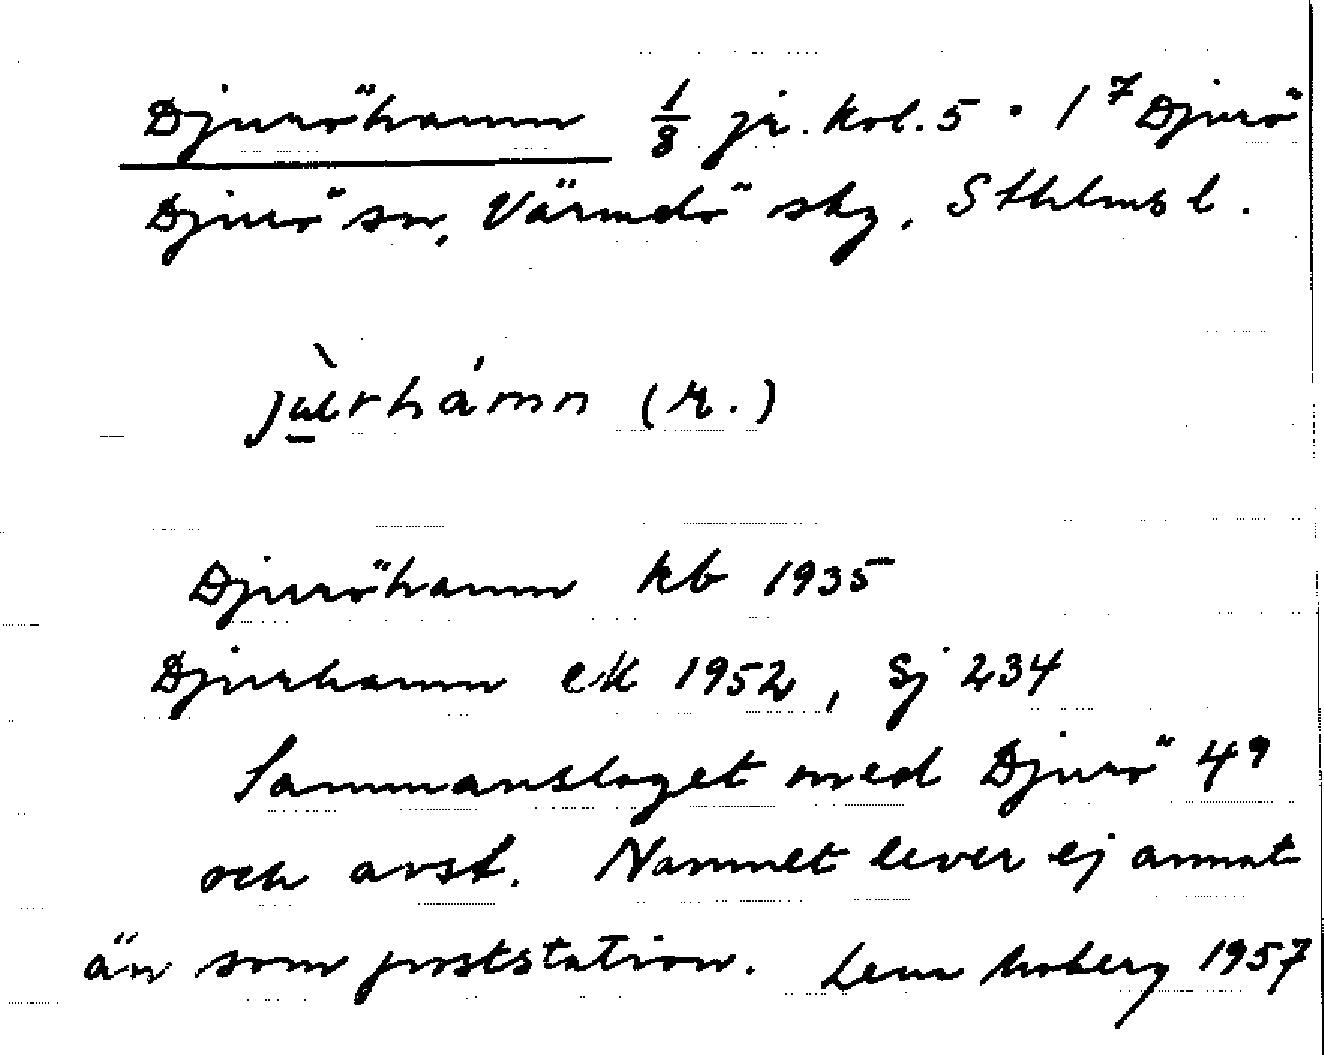 Djuröhamn 1/8 jr. kol. 5 · 1⁷ Djurö
Djurö sn, Värmdö skg, Sthlms l.
jùrhámn (r.)
Djuröhamn kb 1935
Djurhamn ek 1952, Sj 234
Sammanslaget med Djurö 4⁹
och avst. Namnet lever ej annat
än som poststation. Lena Moberg 1957